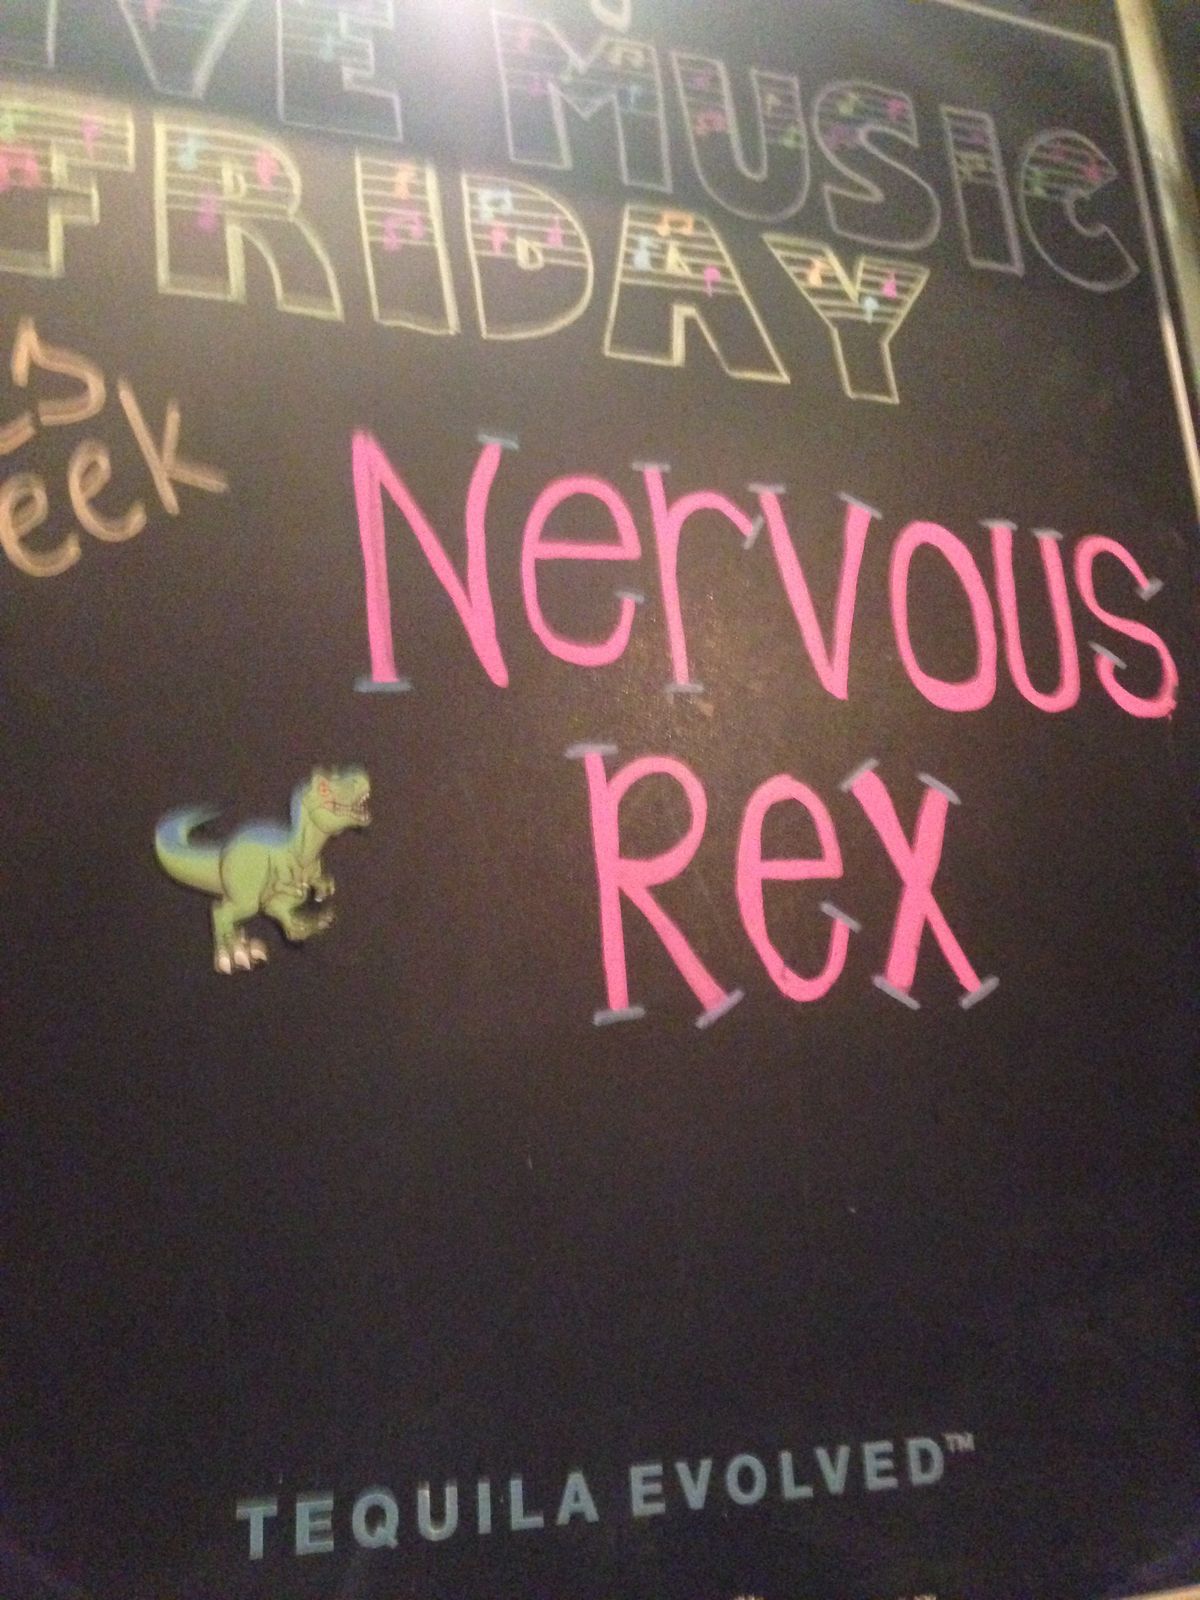 IVE MUSIC
FRIDAY
is
eek
Nervous
Rex
TEQUILA EVOLVED™